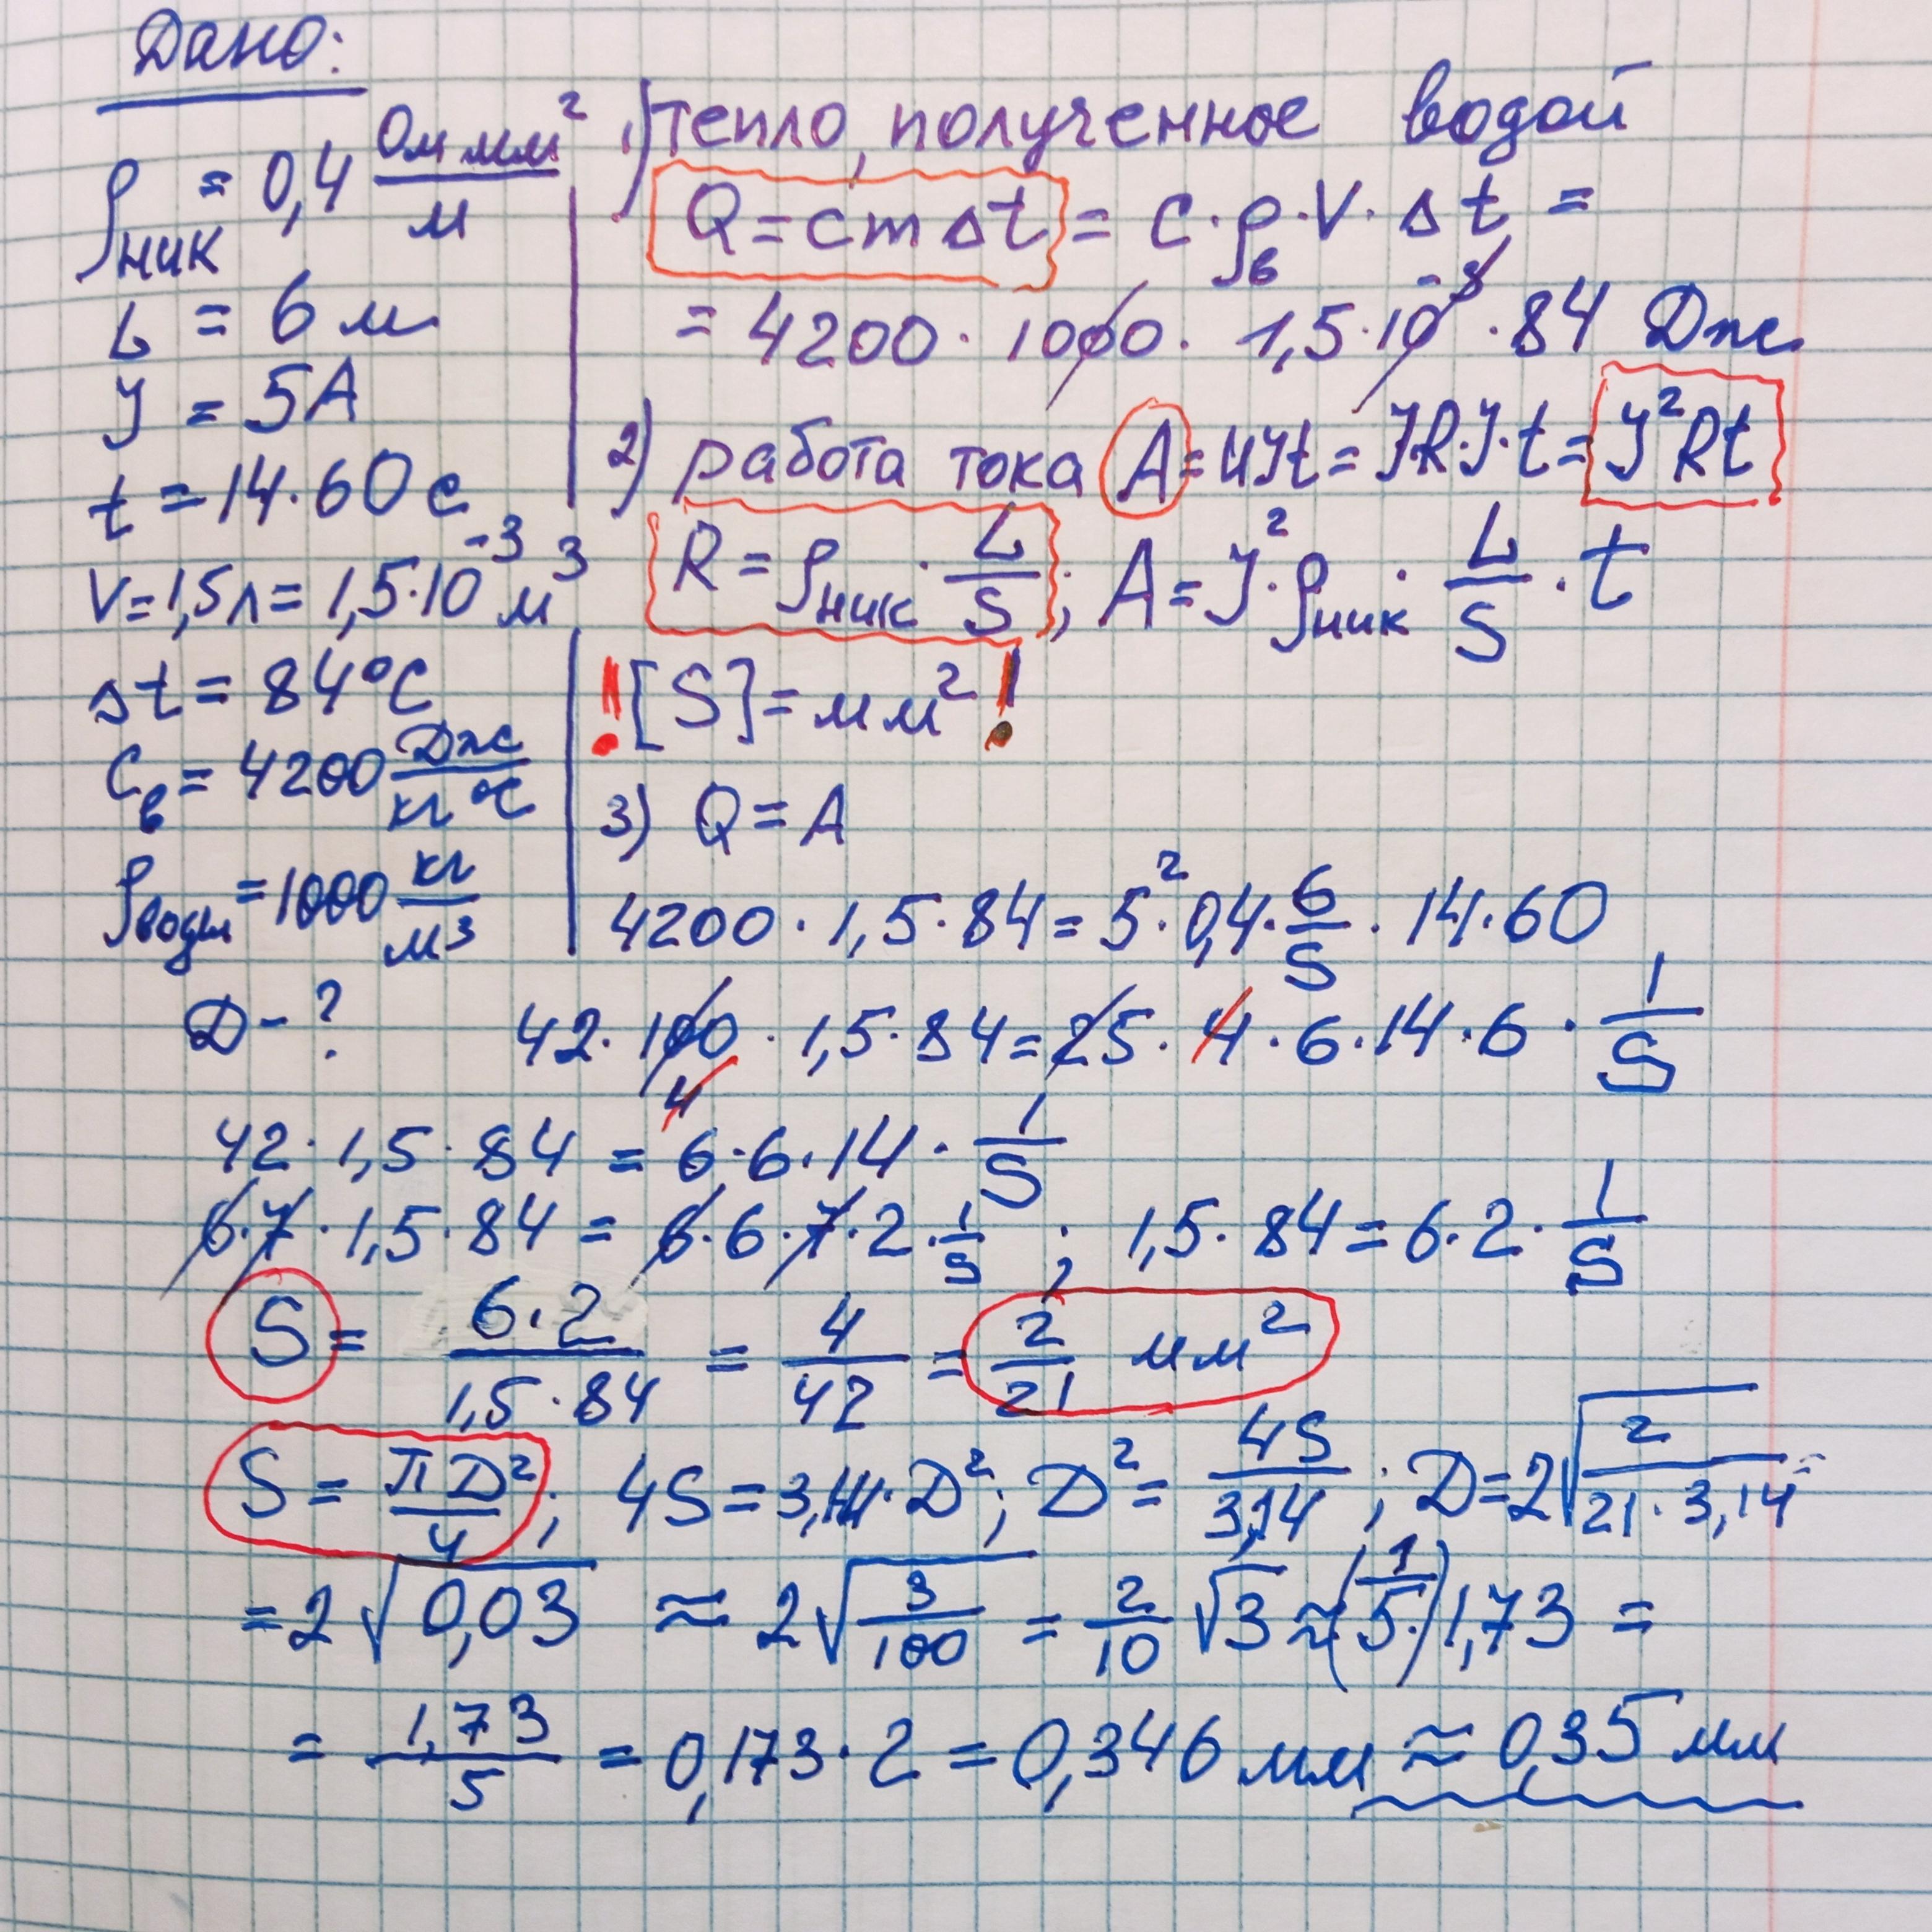 Дано:
ρник = 0,4 Ом мм²/м
L = 6 м
J = 5А
t = 14·60 с
V = 1,5л = 1,5·10⁻³ м³
Δt = 84°С
Cв = 4200 Дж/кг °С
ρводы = 1000 кг/м³
D - ?
1) тепло, полученное водой
Q = cmΔt = C·ρв·V·Δt =
= 4200 · 1000 · 1,5·10⁻³ · 84 Дж
2) работа тока A = UJt = JR·J·t = J²Rt
R = ρник · L/S ; A = J²·ρник · L/S · t
! [S] = мм² !
3) Q = A
4200 · 1,5 · 84 = 5²·0,4 · 6/S · 14·60
42 · 100 · 1,5 · 84 = 25 · 4 · 6 · 14 · 6 · 1/S
4
42 · 1,5 · 84 = 6·6·14 · 1/S
6·7 · 1,5 · 84 = 6·6·7·2 · 1/S ; 1,5 · 84 = 6·2 · 1/S
S = 6·2/1,5·84 = 4/42 = 2/21 мм²
S = πD²/4 ; 4S = 3,14·D² ; D² = 4S/3,14 ; D = 2√(2/21·3,14) =
= 2√0,03 ≈ 2√(3/100) = 2/10 √3 ≈ (1/5·) 1,73 =
= 1,73/5 = 0,173·2 = 0,346 мм ≈ 0,35 мм